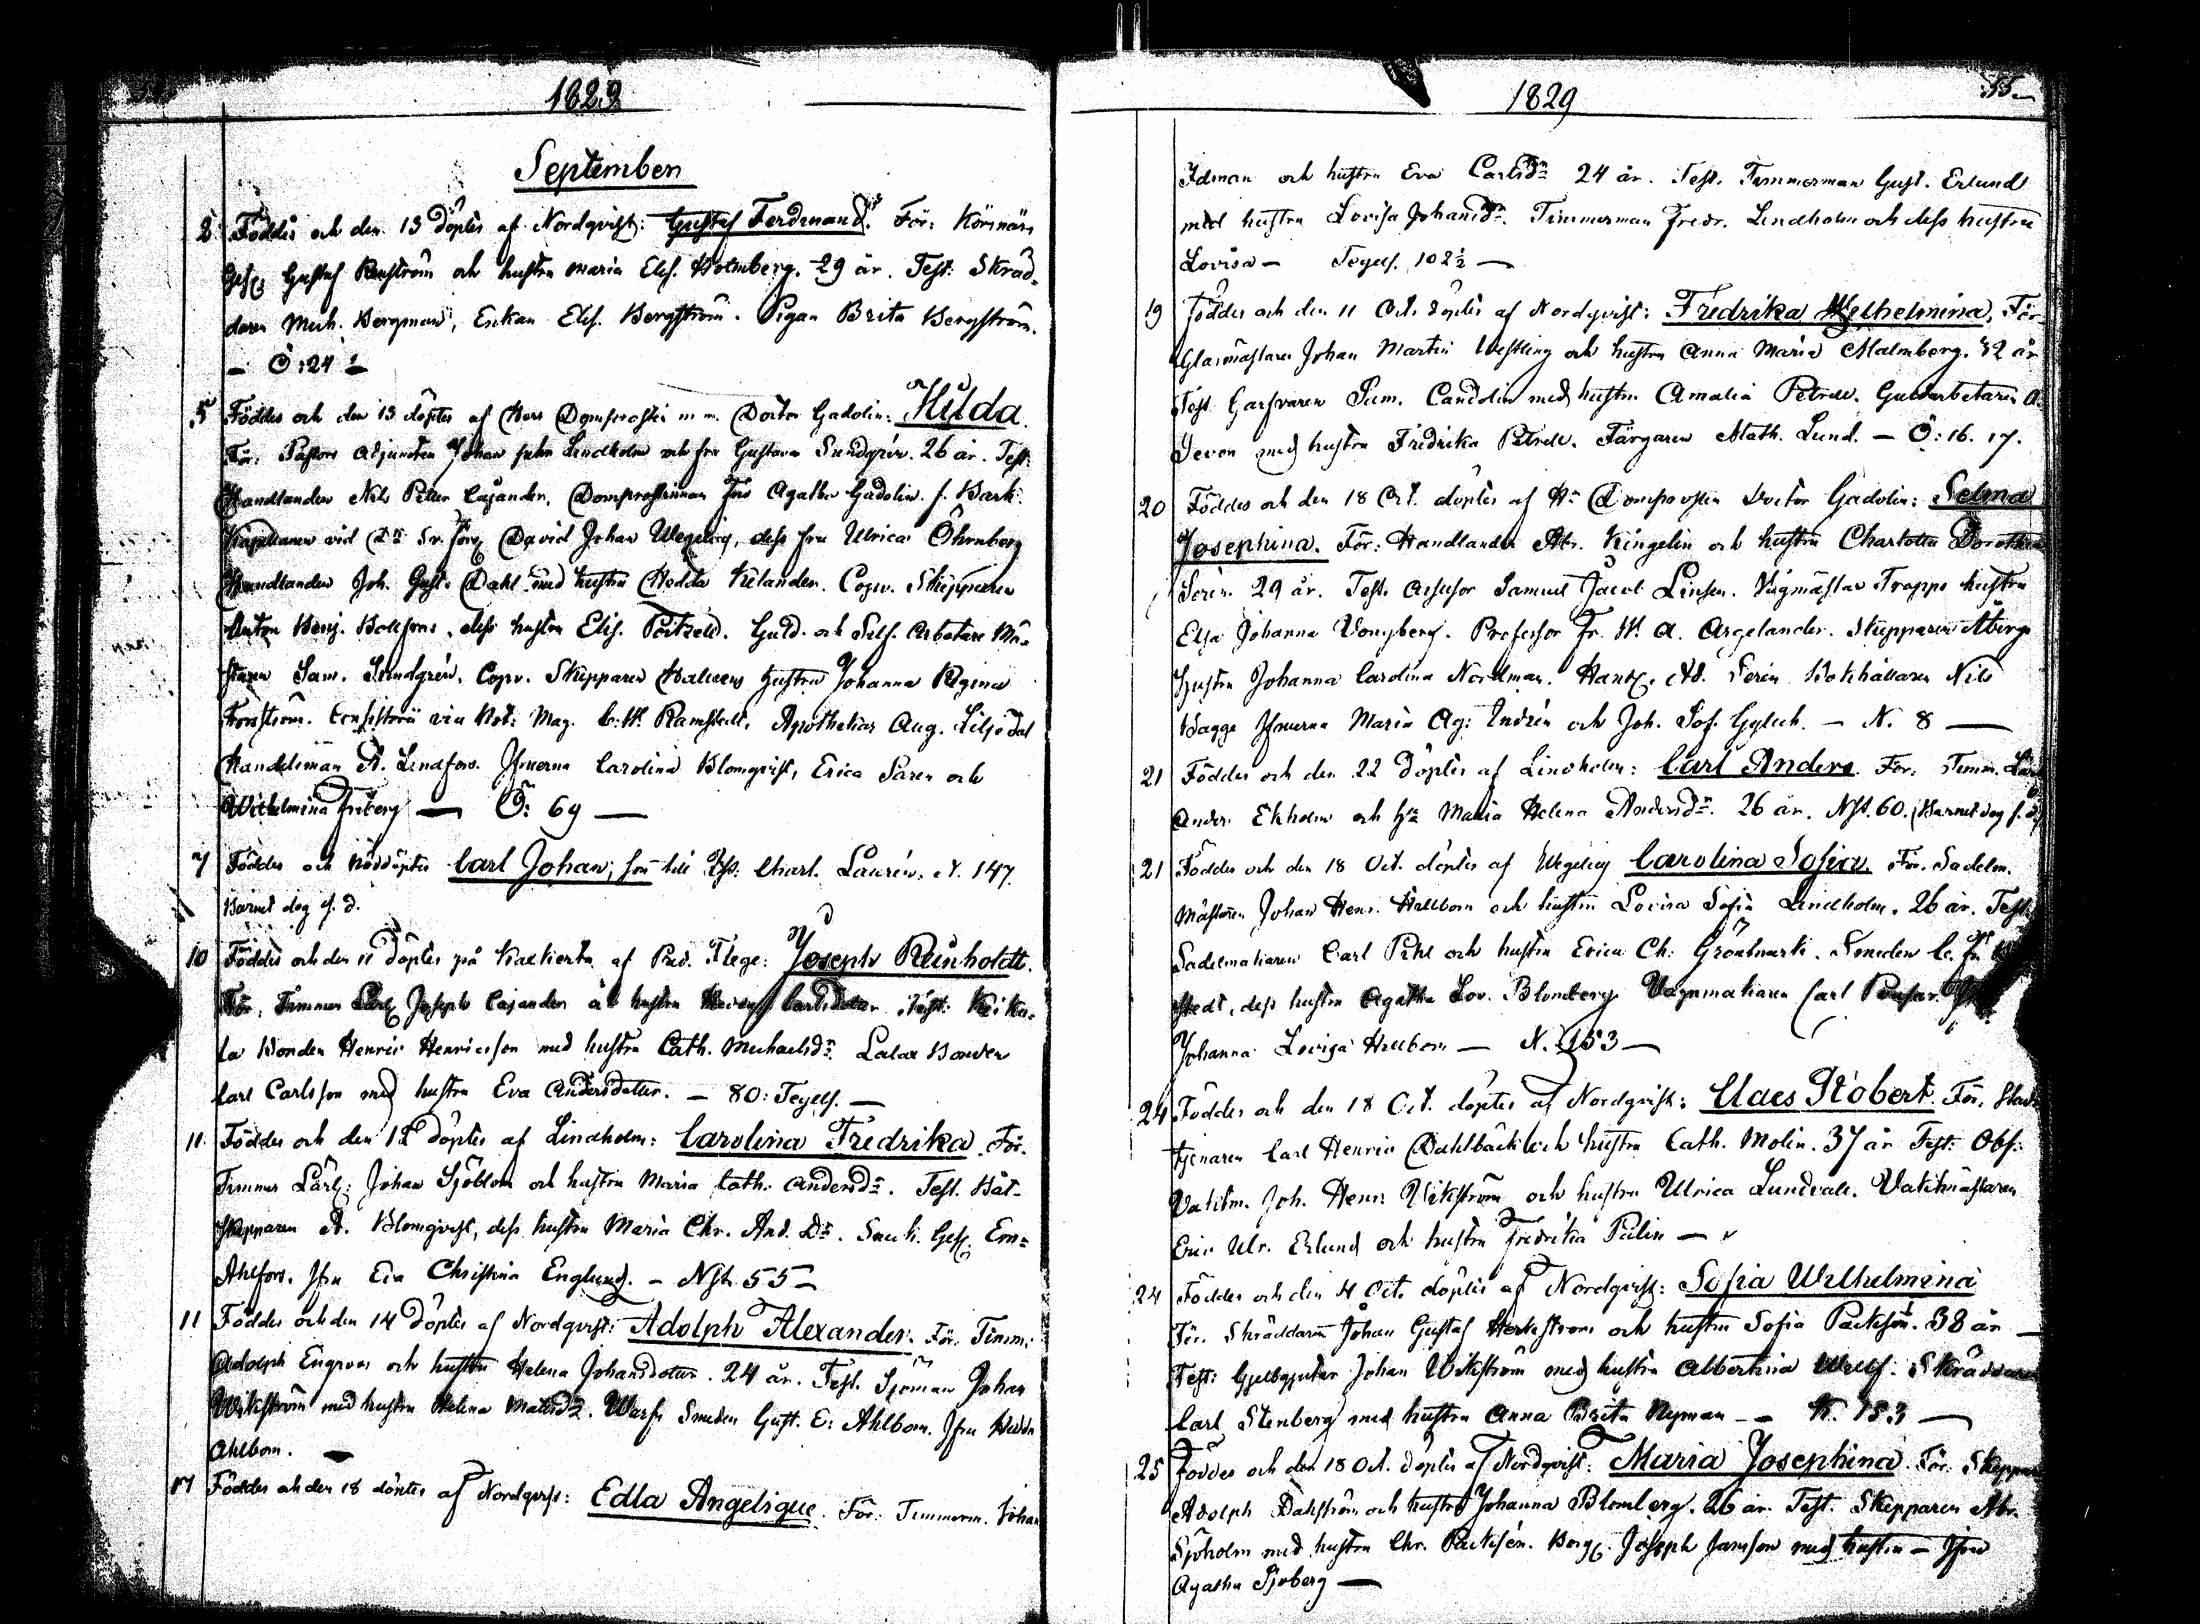 1829
September
2 Föddes och den 13 döptes af Nordqvist: Gustaf Ferdinand. För: Körsnärs
Ges. Gustaf och hustru Maria Elis. Holmberg. 29 år. Test: Skräd-
daren Mich. Bergman, Enkan Elis. Bergström. Pigan Brita Bergström.
— Ö: 24 ½
5 Föddes och den 13 döptes af Herr Domprosten m. m. Doctor Gadolin: Hilda.
För. Pastors Adjuncten Johan Lindholm och fru Gustava Sundqvist. 26 år. Test:
Handlanden Nils Petter Cajander, Domprostinnan Fru Agatha Gadolin. f. Bark.
Kapellanen vid Sv. förs. David Johan Wegelius, dess fru Ulrica Öhrnberg
Handlanden Joh. Gust. Dahl med hustru Hedda Kelander. Copv. Skepparen
Anton Benj. hustru Elis. Guld. och Silf. Arbetare Mä-
staren Sam. Lindgrén. Copv. Skepparen hustru Johanna Regina
Forsström. Mag. C. W. Ramstedt, Apothekar Aug. Liljedal
Handelsman A. Lindfors. Jfruerna Carolina Blomqvist, Erica Saren och
Wilhelmina Friberg — Ö: 69 —
7 Föddes och nöddöptes Carl Johan, son till Charl. Laurén. N. 147.
Barnet dog s. d.
10 Föddes och den 11 döptes på Kaxkerta af Pred. Flege: Joseph Reinholdt.
För. Timmer Lärl. Joseph Cajander och hustru Carlsdotter. Test: Keika-
la Bonden Henric Henricsson med hustru Cath. Michaelsdr. Lalax Bonden
Carl Carlsson med hustru Eva Andersdotter. — 80: Tegels. —
11. Föddes och den 12 döptes af Lindholm: Carolina Fredrika. För.
Timmer Lärl: Johan Sjöblom och hustru Maria Cath. Andersdr. Test. Båt-
skepparen A. Blomqvist, dess hustru Maria Chr. And. Dr. Snick. Ges. Ern=
Ahlfors. Jfru Eva Christina Englund. — Nst. 55 —
11 Föddes och den 14 döptes af Nordqvist: Adolph Alexander. För. Timm:
Adolph Engroos och hustru Helena Johansdotter. 24 år. Test. Sjöman Johan
Wikström med hustru Helena Matsdr. Warfs Smeden Gust. E: Ahlbom. Jfru Hedda
Ahlbom. —
17 Föddes och den 18 döptes af Nordqvist: Edla Angelique. För: Timmerm. Johan
1829
55.
Idman och hustru Eva Carlsdr 24 år. Test. Timmerman Gust. Erlund
med hustru Lovisa Johansdr. Timmerman Fredr. Lindholm och dess hustru
Lovisa — Tegels. 102½ —
19 Föddes och den 11 Oct. döptes af Nordqvist: Fredrika Wilhelmina. För.
Glasmästaren Johan Martin Westling och hustru Anna Maria Malmberg. 32 år
Test Garfvaren Sam. Candolin med hustru Amalia Petrell. Guldarbetaren A.
Deven med hustru Fredrika Petrell. Färgaren Math. Lund. — Ö: 16. 17.
20 Föddes och den 18 Oct. döptes af Hr Domprosten Doctor Gadolin: Selma
Josephina. För: Handlanden Abr. Kingelin och hustru Charlotta Dorothea
Serén. 29 år. Test. Assessor Samuel Jacob Linsén. Vågmästar Trapps hustru
Elsa Johanna Vongberg. Professor Fr. W. A. Argelander. Skepparen Åbergs
hustru Johanna Carolina Nordman. Handl. Ad. Serén Bokhållaren Nils
Bagge Jfruerna Maria Ag: Indrén och Joh. Sof. Gylich. — N. 8 —
21 Föddes och den 22 döptes af Lindholm: Carl Anders. För: Timm. Lärl
Ander. Ekholm och hu Maria Helena Andersdr. 26 år. Nst. 60. (Barnet dog s. d.)
21 Föddes och den 18 Oct. döptes af Wegelius Carolina Sofia. För. Sadelm.
Mästaren Johan Henr. Hellbom och hustru Lovisa Sofia Lindholm. 26 år. Test.
Sadelmakaren Carl Pihl och hustru Erica Ch: Grönmark. Smeden C. Fr.
stedt, dess hustru Agatha Lov. Blomberg. Vagnmakaren Carl
Johanna Lovisa Hellbom — N. 153 —
24 Föddes och den 18 Oct. döptes af Nordqvist: Claes Robert. För. Stads
tjenaren Carl Henric Dahlbäck och hustru Cath. Molin. 37 år Test: Obs:
Vaktm. Joh. Henr. Wikström och hustru Ulrica Lundvall. Vaktmästaren
Eric Ulr. Erlund och hustru Fredrika Palin —
24 Föddes och den 4 Oct. döptes af Nordqvist: Sofia Wilhelmina
För. Skräddaren Johan Gustaf Herkström och hustru Sofia Packsén. 38 år —
Test: Gjelbgjutar Johan Wikström med hustru Albertina Skräddaren
Carl Stenberg med hustru Anna Brita Nyman — N. 153 —
25 Föddes och den 18 Oct. döptes af Nordqvist: Maria Josephina. För: Skeppar
Adolph Dahlström och hustru Johanna Blomberg. 26 år. Test. Skepparen Abr.
Sjöholm med hustru Chr. Packsén. Borg. Joseph Jansson med hustru — Jfru
Agatha Sjöberg —